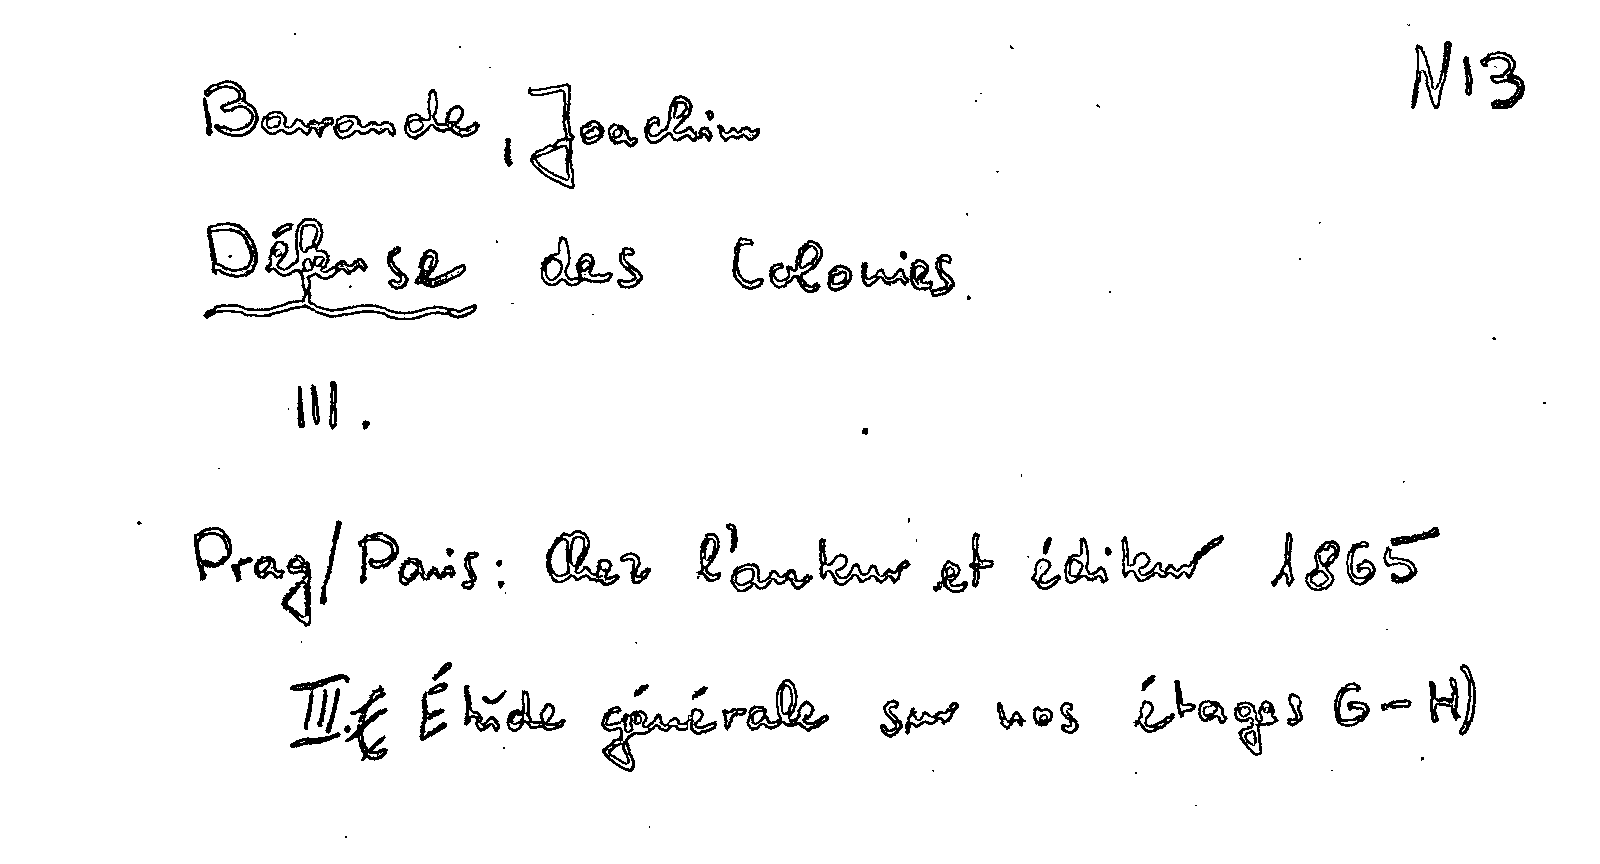 N 13
Barrande, Joachim
Défense des Colonies.
III.
Prag/Paris: Chez l'auteur et éditeur 1865
III. (Étude générale sur nos étages G-H)